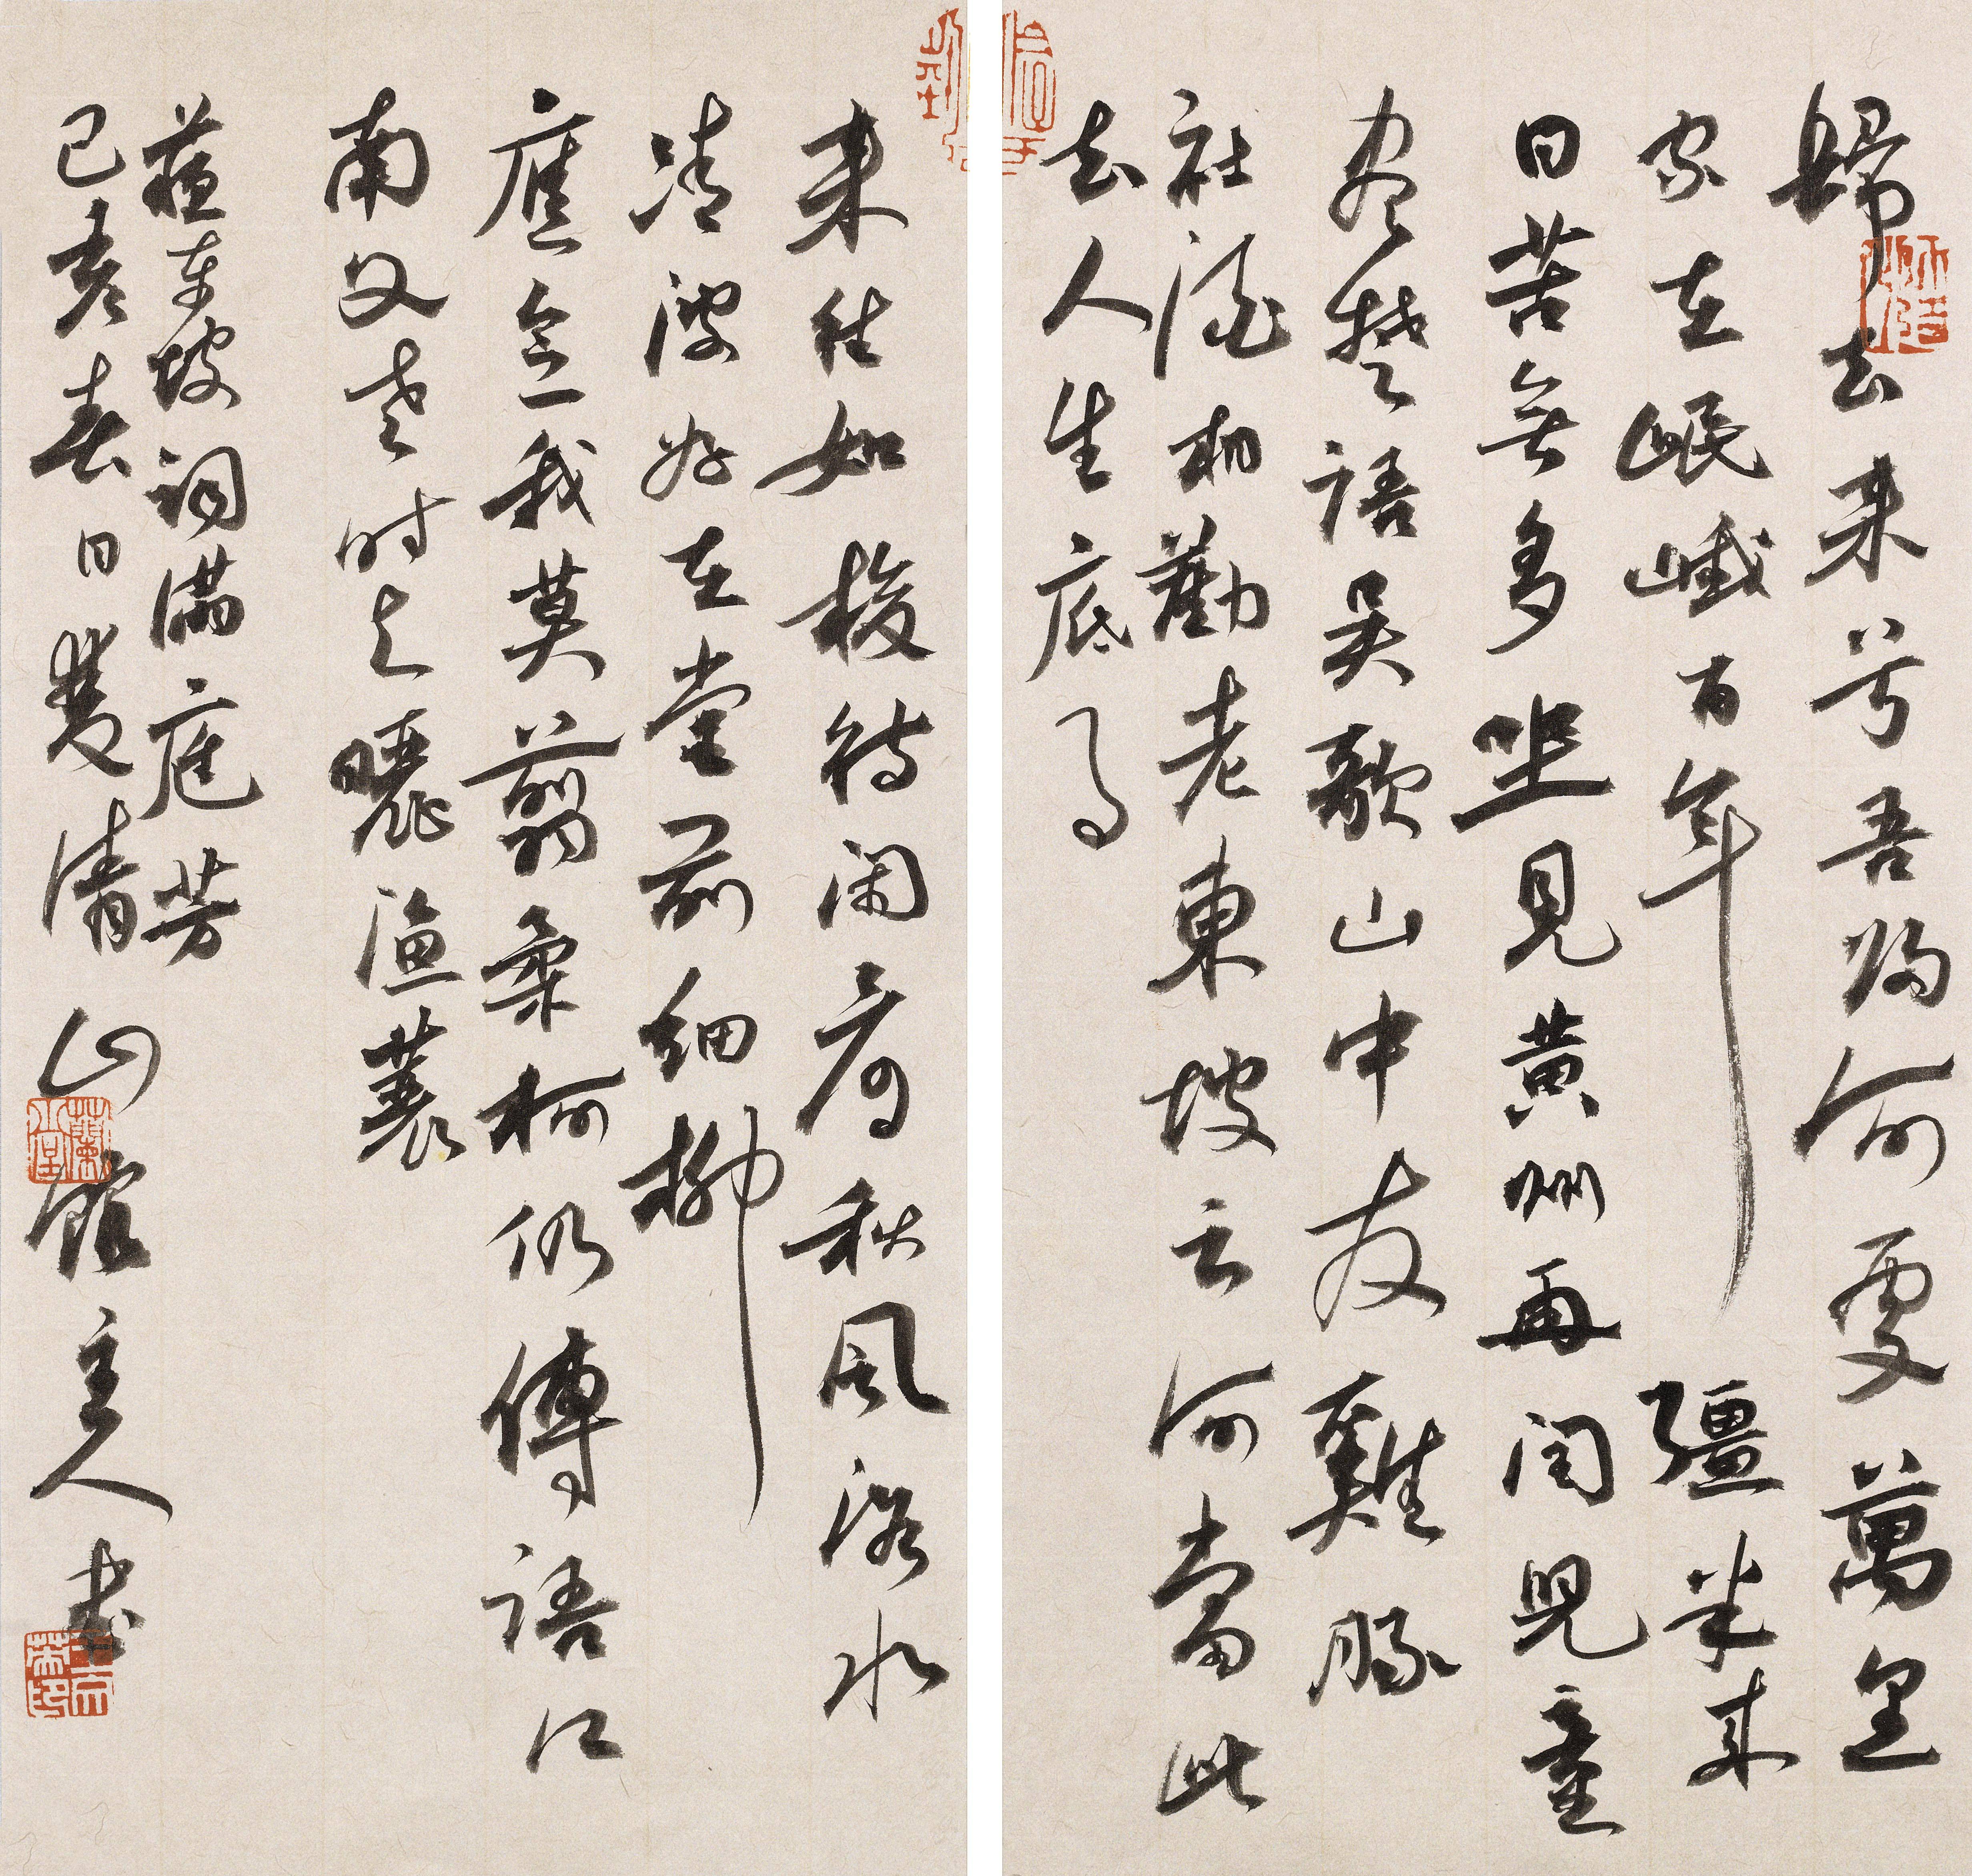 歸去来兮吾歸何處萬里
家在岷峨百年彊半来
日苦無多坐見黃州再閏兒童
盡楚語吳歌山中友雞豚
社酒相勸老東坡云何當此
去人生底事
来往如梭待閑看秋風洛水
清波好在堂前細柳
應念我莫翦柔柯仍傳語江
南父老時與曬漁蓑
蘇東坡詞滿庭芳
己亥春日雙清山館主人書